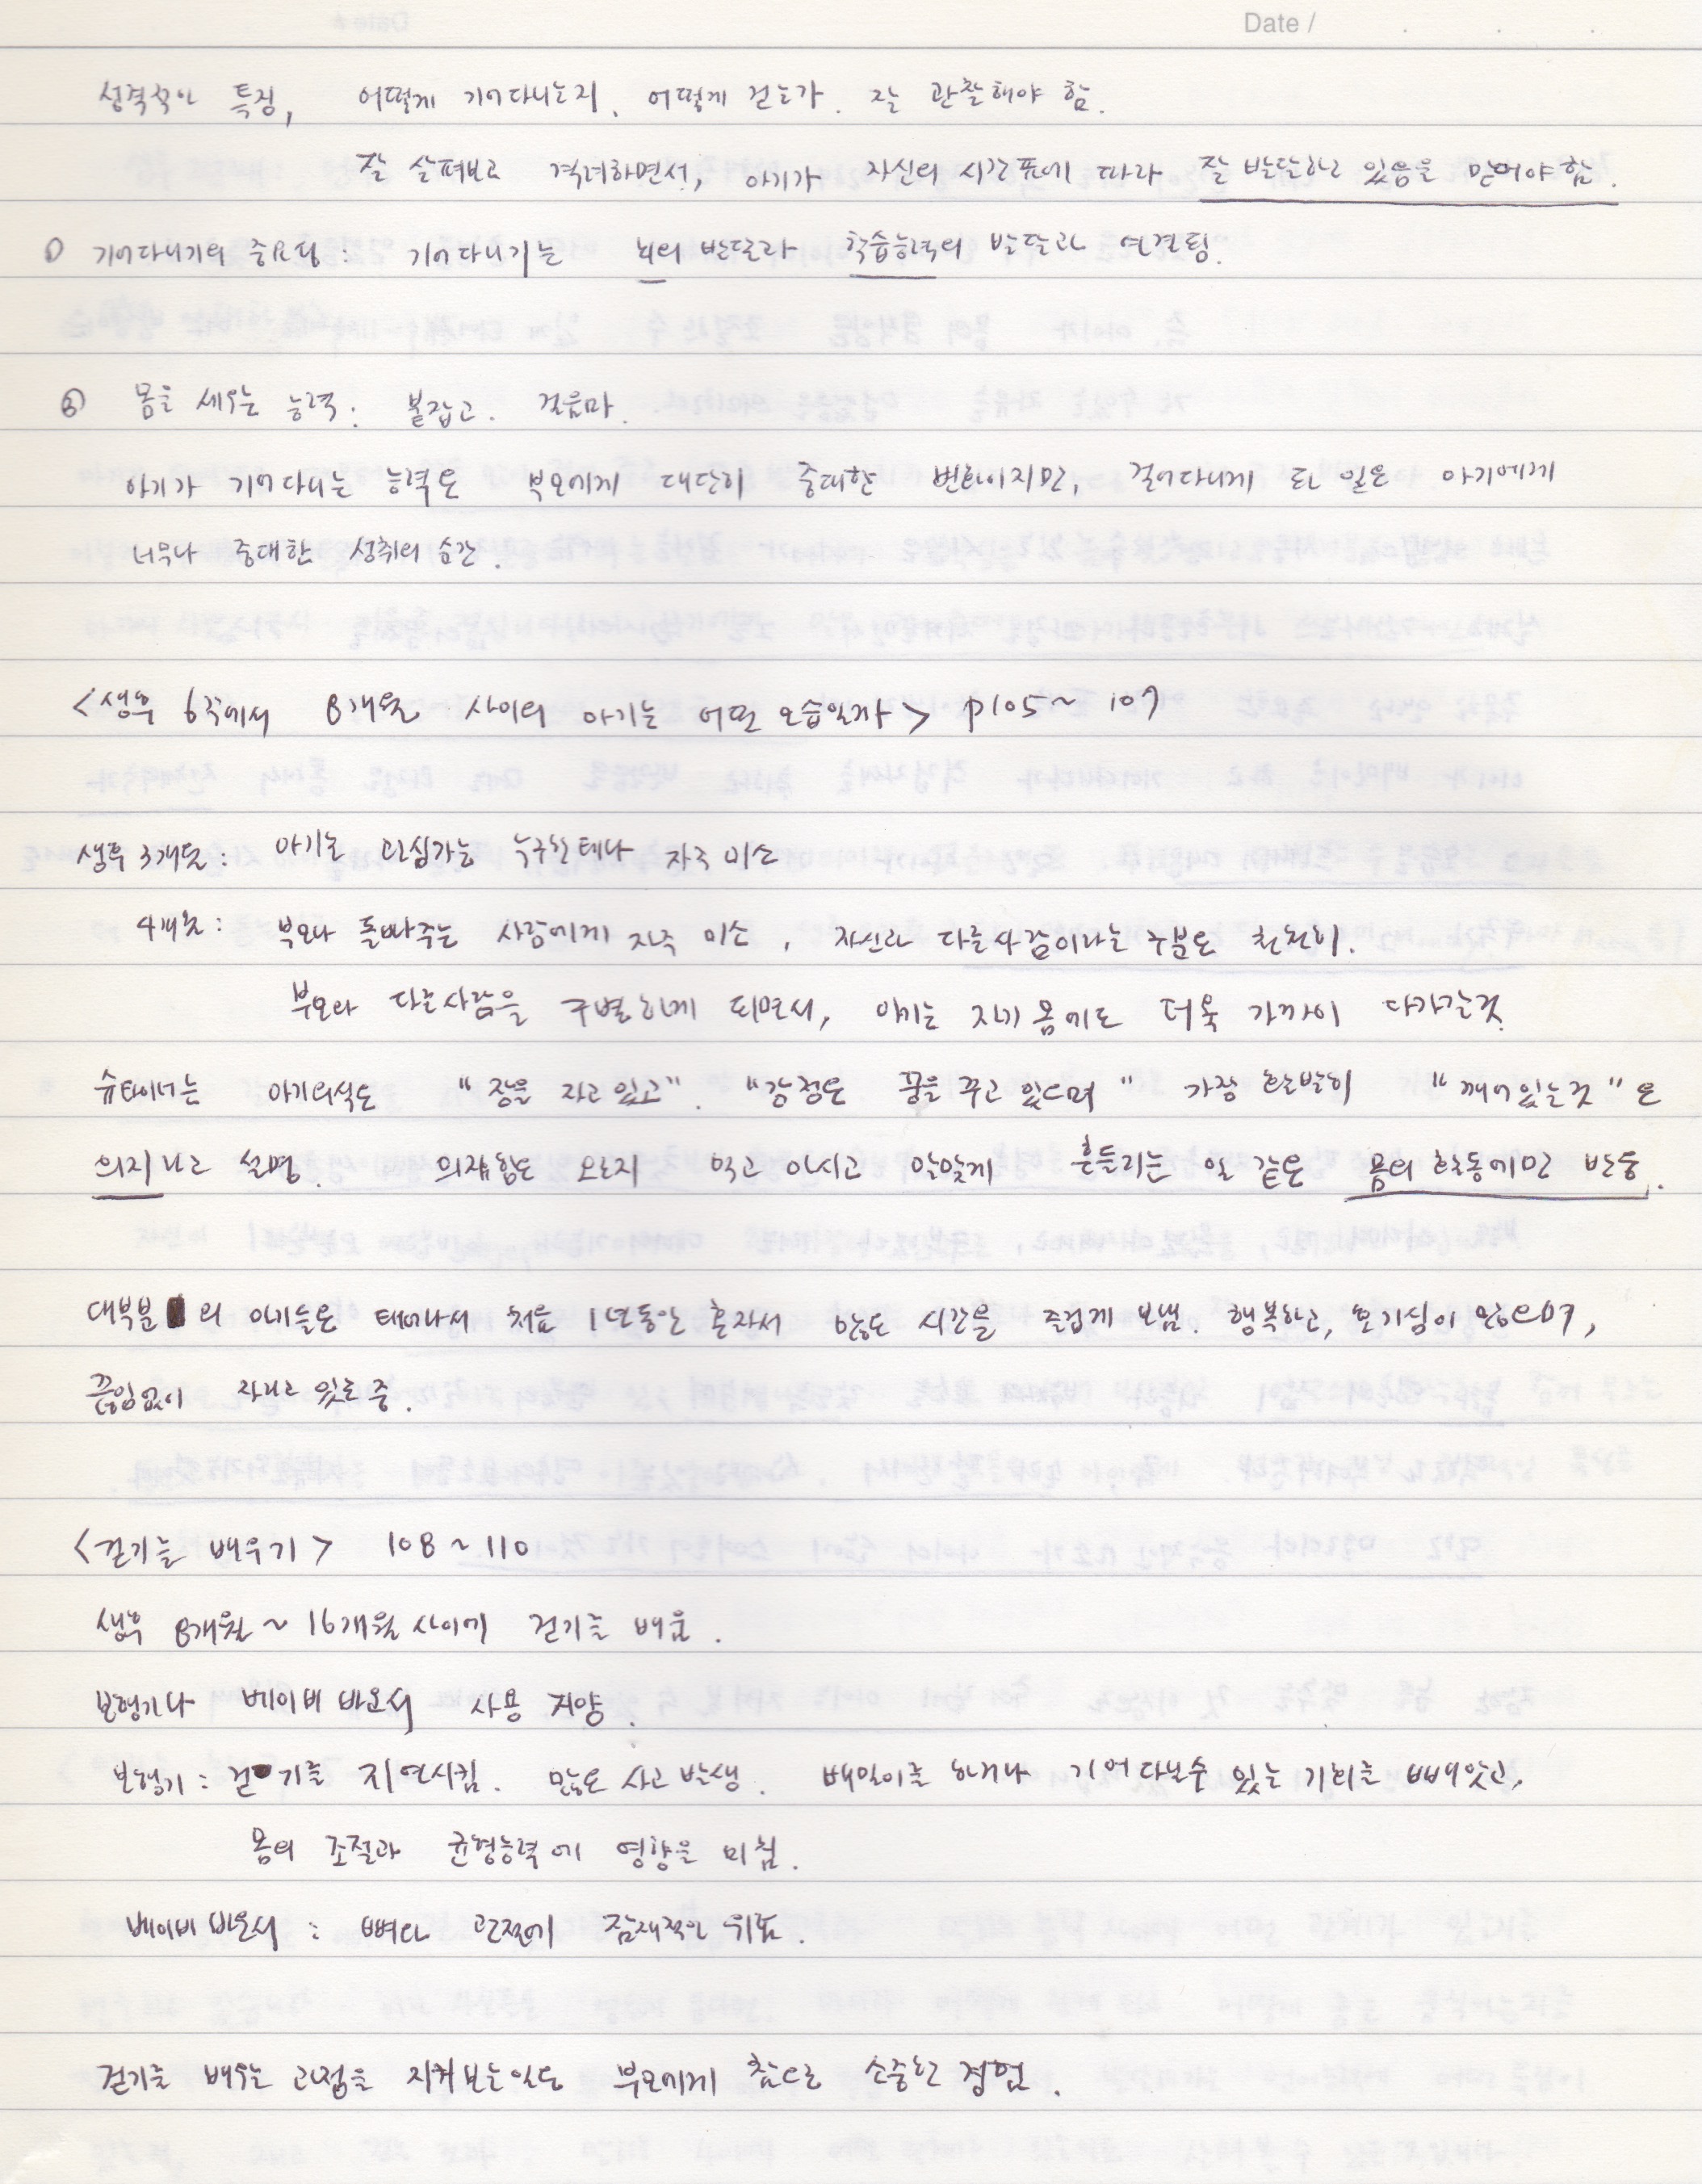 Date / . . .
성격적인 특징, 어떻게 기어다니는지, 어떻게 걷는가. 잘 관찰해야 함.
잘 살펴보고 격려하면서, 아기가 자신의 시간표에 따라 잘 발달하고 있음을 믿어야 함.
① 기어다니기의 중요점 : 기어다니기는 뇌의 발달과 학습능력의 발달과 연결됨.
⑥ 몸을 세우는 능력. 붙잡고. 걸음마.
아기가 기어다니는 능력은 부모에게 대단히 중대한 변화이지만, 걸어다니게 된 일은 아기에게
너무나 중대한 성취의 순간.
<생후 6주에서 8개월 사이의 아기는 어떤 모습일까> p105~107
생후 3개월 : 아기는 관심가는 누구한테나 자주 미소
4개월 : 부모나 돌봐주는 사람에게 자주 미소, 자신과 다른사람이라는 구분도 천천히.
부모와 다른사람을 구별하게 되면서, 아기는 자기 몸에도 더욱 가까이 다가갈것.
슈타이너는 아기의식은 "잠을 자고 있고". "감정은 꿈을 꾸고 있으며" 가장 활발히 "깨어있는것"은
의지라고 설명. 의지활동은 오로지 먹고 마시고 알맞게 흔들리는 일 같은 몸의 활동에만 반응.
대부분의 아기들은 태어나서 처음 1년동안 혼자서 많은 시간을 즐겁게 보냄. 행복하고, 호기심이 많으며,
끊임없이 자라고 있는 중.
<걷기를 배우기> 108~110
생후 8개월~16개월 사이에 걷기를 배움.
보행기나 베이비 바운서 사용 지양.
보행기 : 걷기를 지연시킴. 많은 사고 발생. 배밀이를 하거나 기어다닐수 있는 기회를 빼앗고,
몸의 조절과 균형능력에 영향을 미침.
베이비 바운서 : 뼈와 관절에 잠재적인 위험.
걷기를 배우는 과정을 지켜보는일은 부모에게 참으로 소중한 경험.